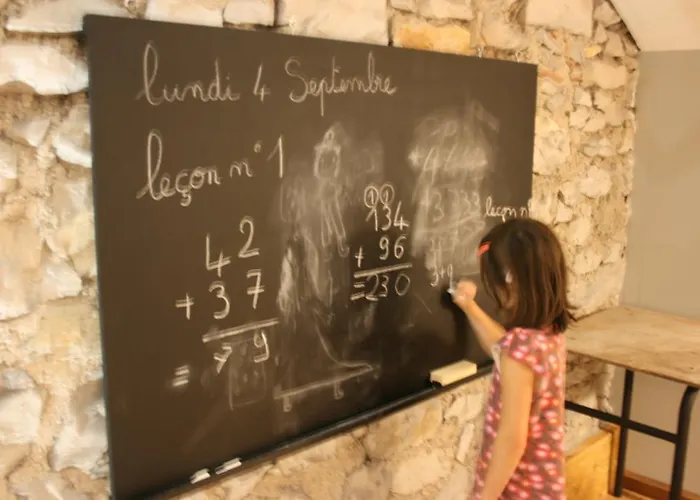 lundi 4 Septembre
leçon n° 1
42
+ 37
= 79
1 1
134
+ 96
=230
leçon n
3+9